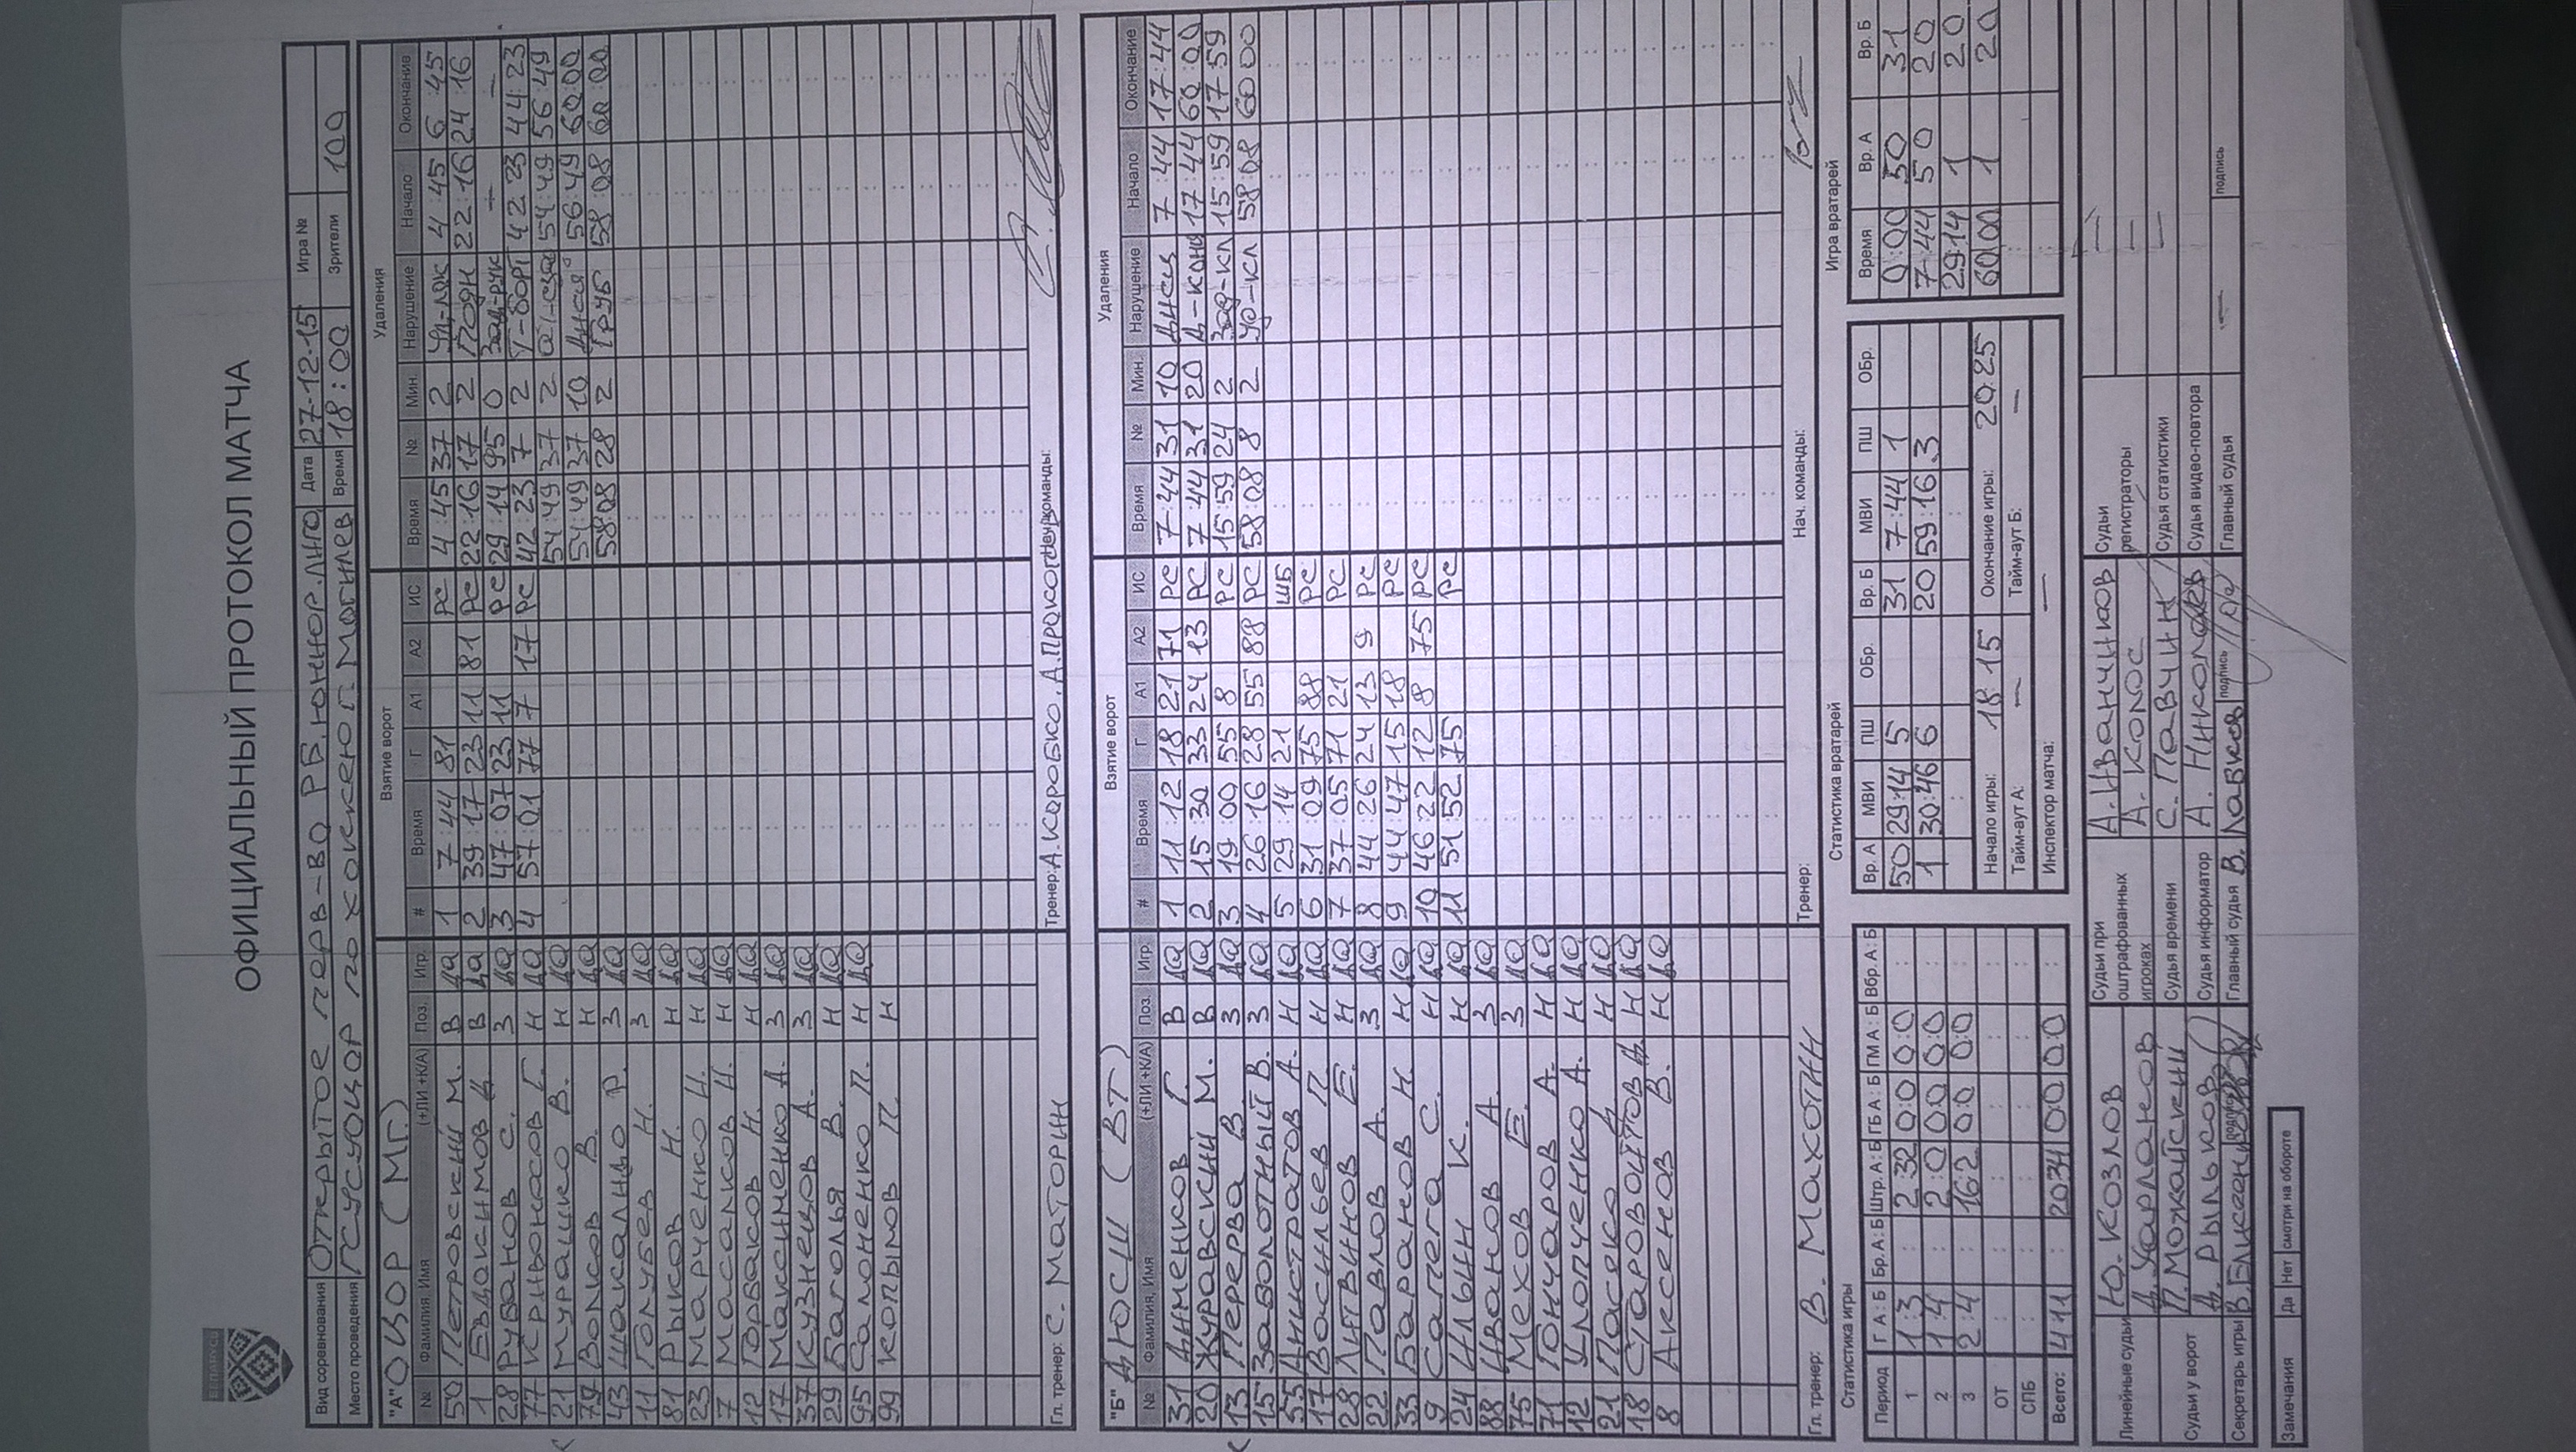 ОФИЦИАЛЬНЫЙ ПРОТОКОЛ МАТЧА
Вид соревнования Открытое перв-во РБ. юниор. лиго Дата 27-12-15 Игра №
Место проведения ГСУСУОЦОР по хоккею г. Могилев Время 18:00 Зрители 100
"А" ОЦОР (МГ.) Взятие ворот Удаления
№ Фамилия, Имя (+ЛИ +К/А) Поз. Игр. # Время Г А1 А2 ИС Время № Мин. Нарушение Начало Окончание
50 Петровский М. В да 1 7:44 81 РС 4:45 37 2 4:45 6:45
1 Евдокимов В да 2 39:17 23 11 81 РС 22:16 17 2 Подн 22:16 24:16
28 Рубанов С. З да 3 47:07 23 11 РС 29:14 95 0 Зад-рук — —
77 Кривоносов Г. Н да 4 57:01 77 7 17 РС 42:23 7 2 42:23 44:23
21 Мурашко В. Н да 54:49 37 2 54:49 56:49
79 Волков В. Н да 54:49 37 10 56:49 60:00
43 Шакалидо Р. З да 58:08 28 2 Груб 58:08 60:00
11 Голубев Н. З да
81 Рыков Н. Н да
23 Марченко И. Н да
7 Масалков И. Н да
12 Горбаков Н. Н да
17 Максименко А. З да
37 Кузнецов А. З да
29 Баголья В. Н да
95 Салоненко П. Н да
99 Копылов П. Н
Гл. тренер: С. Маторин Тренер: А. Коробко. А. Прокопов Нач. команды:
"Б" ДЮСШ (ВТ) Взятие ворот Удаления
№ Фамилия, Имя (+ЛИ +К/А) Поз. Игр. # Время Г А1 А2 ИС Время № Мин. Нарушение Начало Окончание
31 Анненков Г. В да 1 11:12 18 21 71 РС 7:44 31 10 7:44 17:44
20 Журавский М. В да 2 15:30 33 24 13 РС 7:44 31 20 Д-конд 17:44 60:00
13 Перерва В. З да 3 19:00 55 8 РС 15:59 24 2 Зад-кл 15:59 17:59
15 Заболотный В. З да 4 26:16 28 55 88 РС 58:08 8 2 Уд-кл 58:08 60:00
55 Анистратов А. Н да 5 29:14 21 ШБ
17 Васильев П. Н да 6 31:09 75 88 РС
28 Литвинков Е. Н да 7 37:05 71 21 РС
22 Павлов А. З да 8 44:26 24 13 9 РС
33 Баранков Н. Н да 9 44:47 15 18 РС
9 Сапега С. Н да 10 46:22 12 8 75 РС
24 Ильин К. Н да 11 51:52 75 РС
88 Иванов А. З да
75 Мехов Е. З да
71 Гончаров А. Н да
12 Хлопченко А. Н да
21 Пасяко Н да
18 Старовойтов Н да
8 Аксенов В. Н да
Гл. тренер: В. Махотин Тренер: Нач. команды:
Статистика игры Статистика вратарей Игра вратарей
Период Г А : Б Бр. А: Б Штр. А: Б ГБ А : Б ГМ А : Б Вбр. А : Б Вр. А МВИ ПШ Обр. Вр. Б МВИ ПШ Обр. Время Вр. А Вр. Б
1 1:3 2:32 0:0 0:0 50 29:14 5 31 7:44 1 0:00 50 31
2 1:4 2:0 0:0 0:0 1 30:46 6 20 59:16 3 7:44 50 20
3 2:4 16:2 0:0 0:0 29:14 1 20
ОТ Начало игры: 18 15 Окончание игры: 20 25 60:00 1 20
СПБ Тайм-аут А: — Тайм-аут Б: —
Всего: 4 11 20:34 0:0 0:0 Инспектор матча: —
Линейные судьи Ю. Козлов Судьи при оштрафованных игроках А. Иванчиков Судьи регистраторы —
А. Харланов А. Колос —
Судьи у ворот П. Можайский Судья времени С. Павчин Судья статистики —
А. Рыльков Судья информатор А. Николаев Судья видео-повтора
Секретарь игры В. подпись Главный судья В. Лавков подпись Главный судья — подпись
Замечания Да Нет смотри на обороте